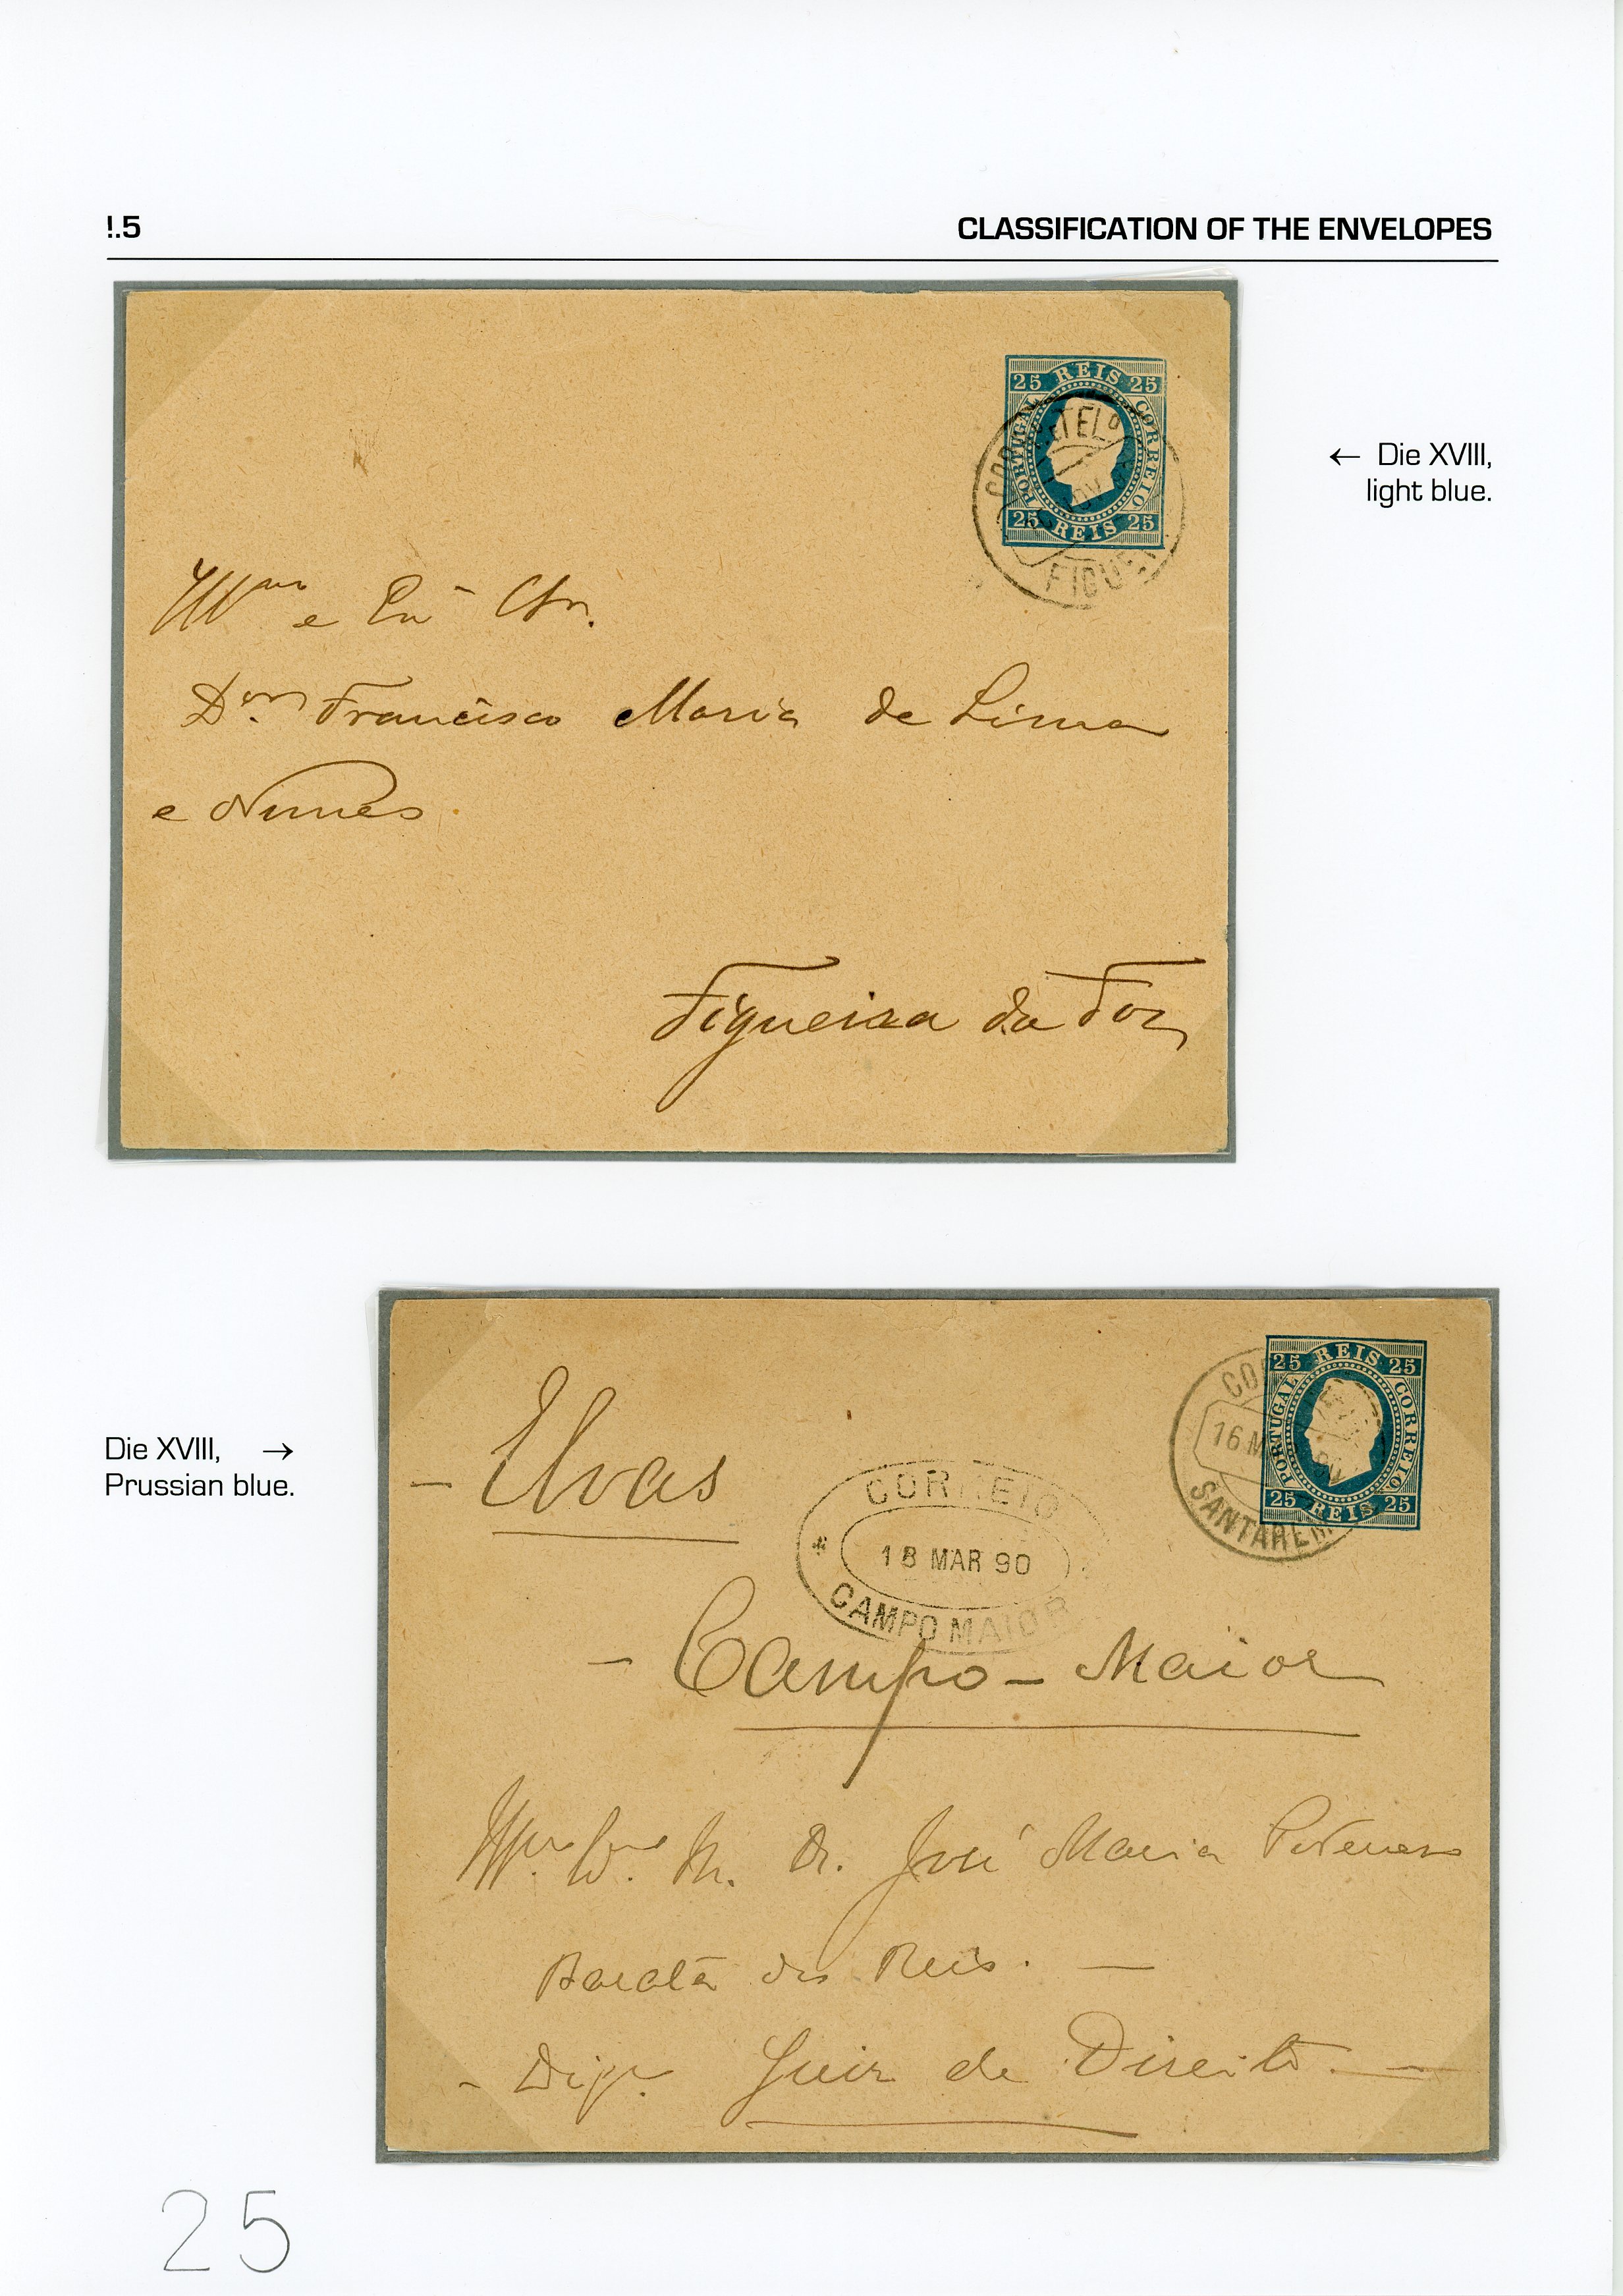 !.5 CLASSIFICATION OF THE ENVELOPES
25 REIS 25
PORTUGAL CORREIO
25 REIS 25
← Die XVIII,
light blue.
Illmo e Sr.
Dom Francisco Maria de Lima
e Nunes
Figueira da Foz
Die XVIII, →
Prussian blue.
25 REIS 25
PORTUGAL CORREIO
25 REIS 25
SANTAREM
- Elvas
CORREIO
18 MAR 90
CAMPO MAIOR
- Campo - Maior
Dr. José Maria
Barata dos Reis. —
- Juiz de Direito —
25